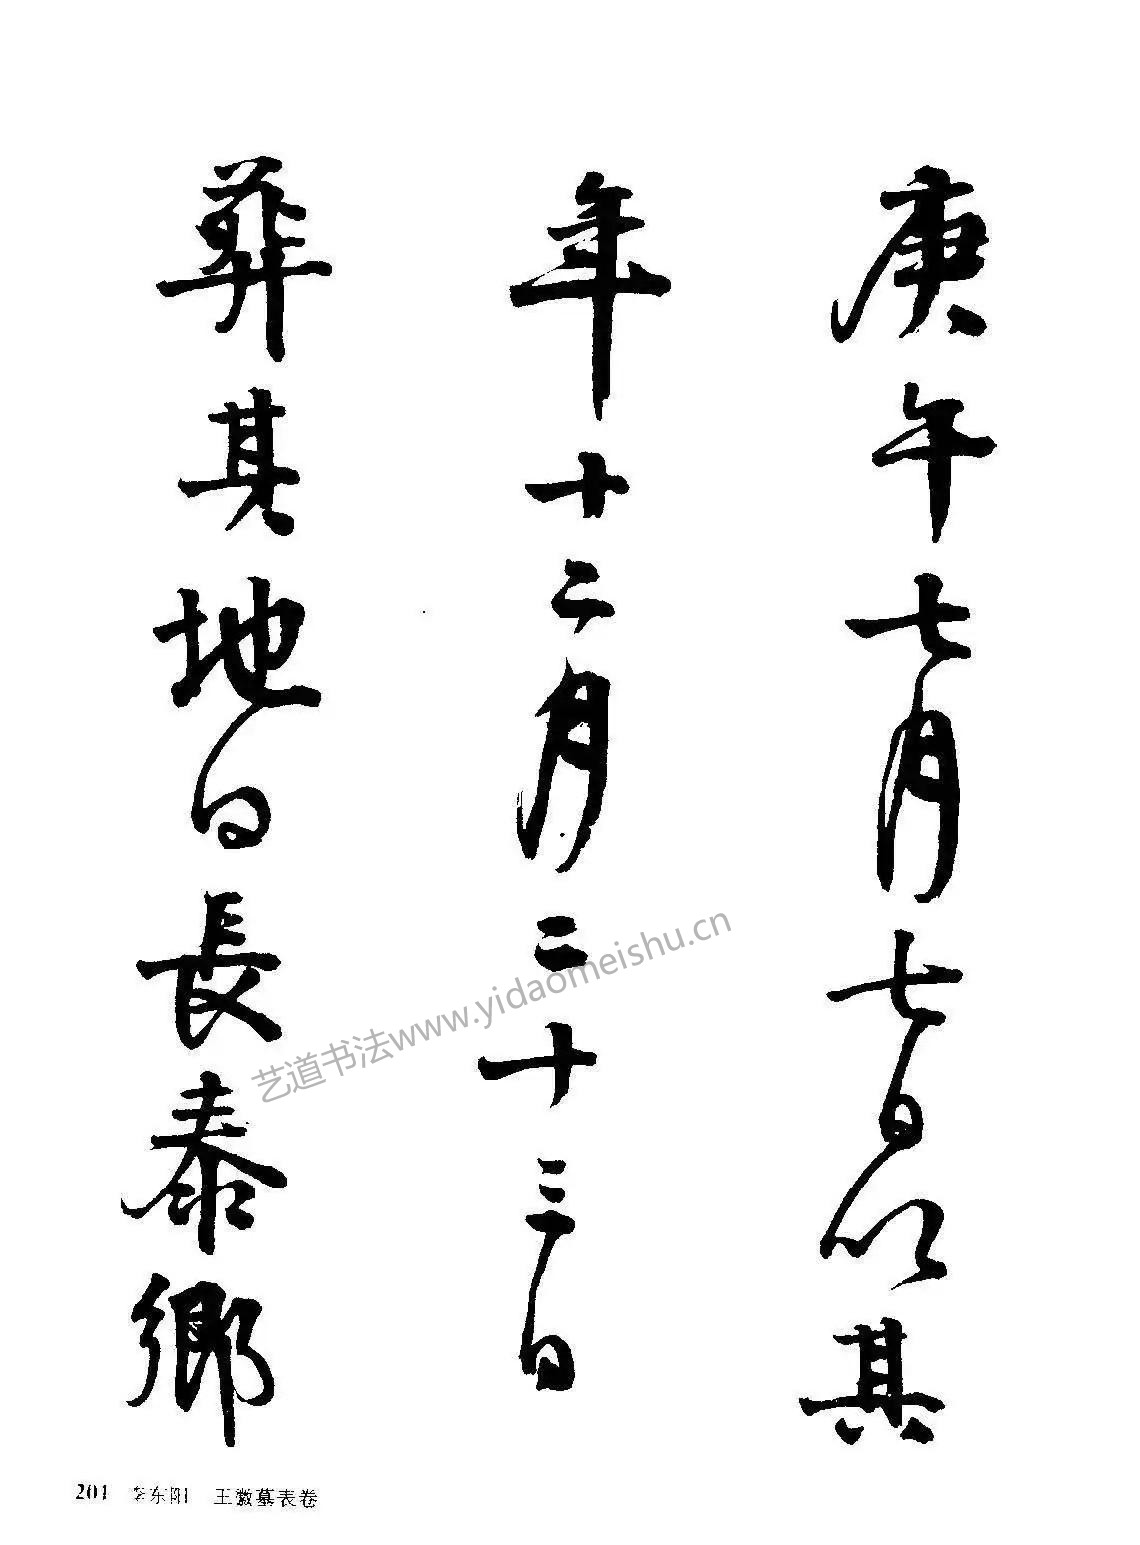 庚午七月七日以其
年十二月二十三日
葬其地曰長泰鄉
艺道书法www.yidaomeishu.cn
201 李东阳 王徽墓表卷